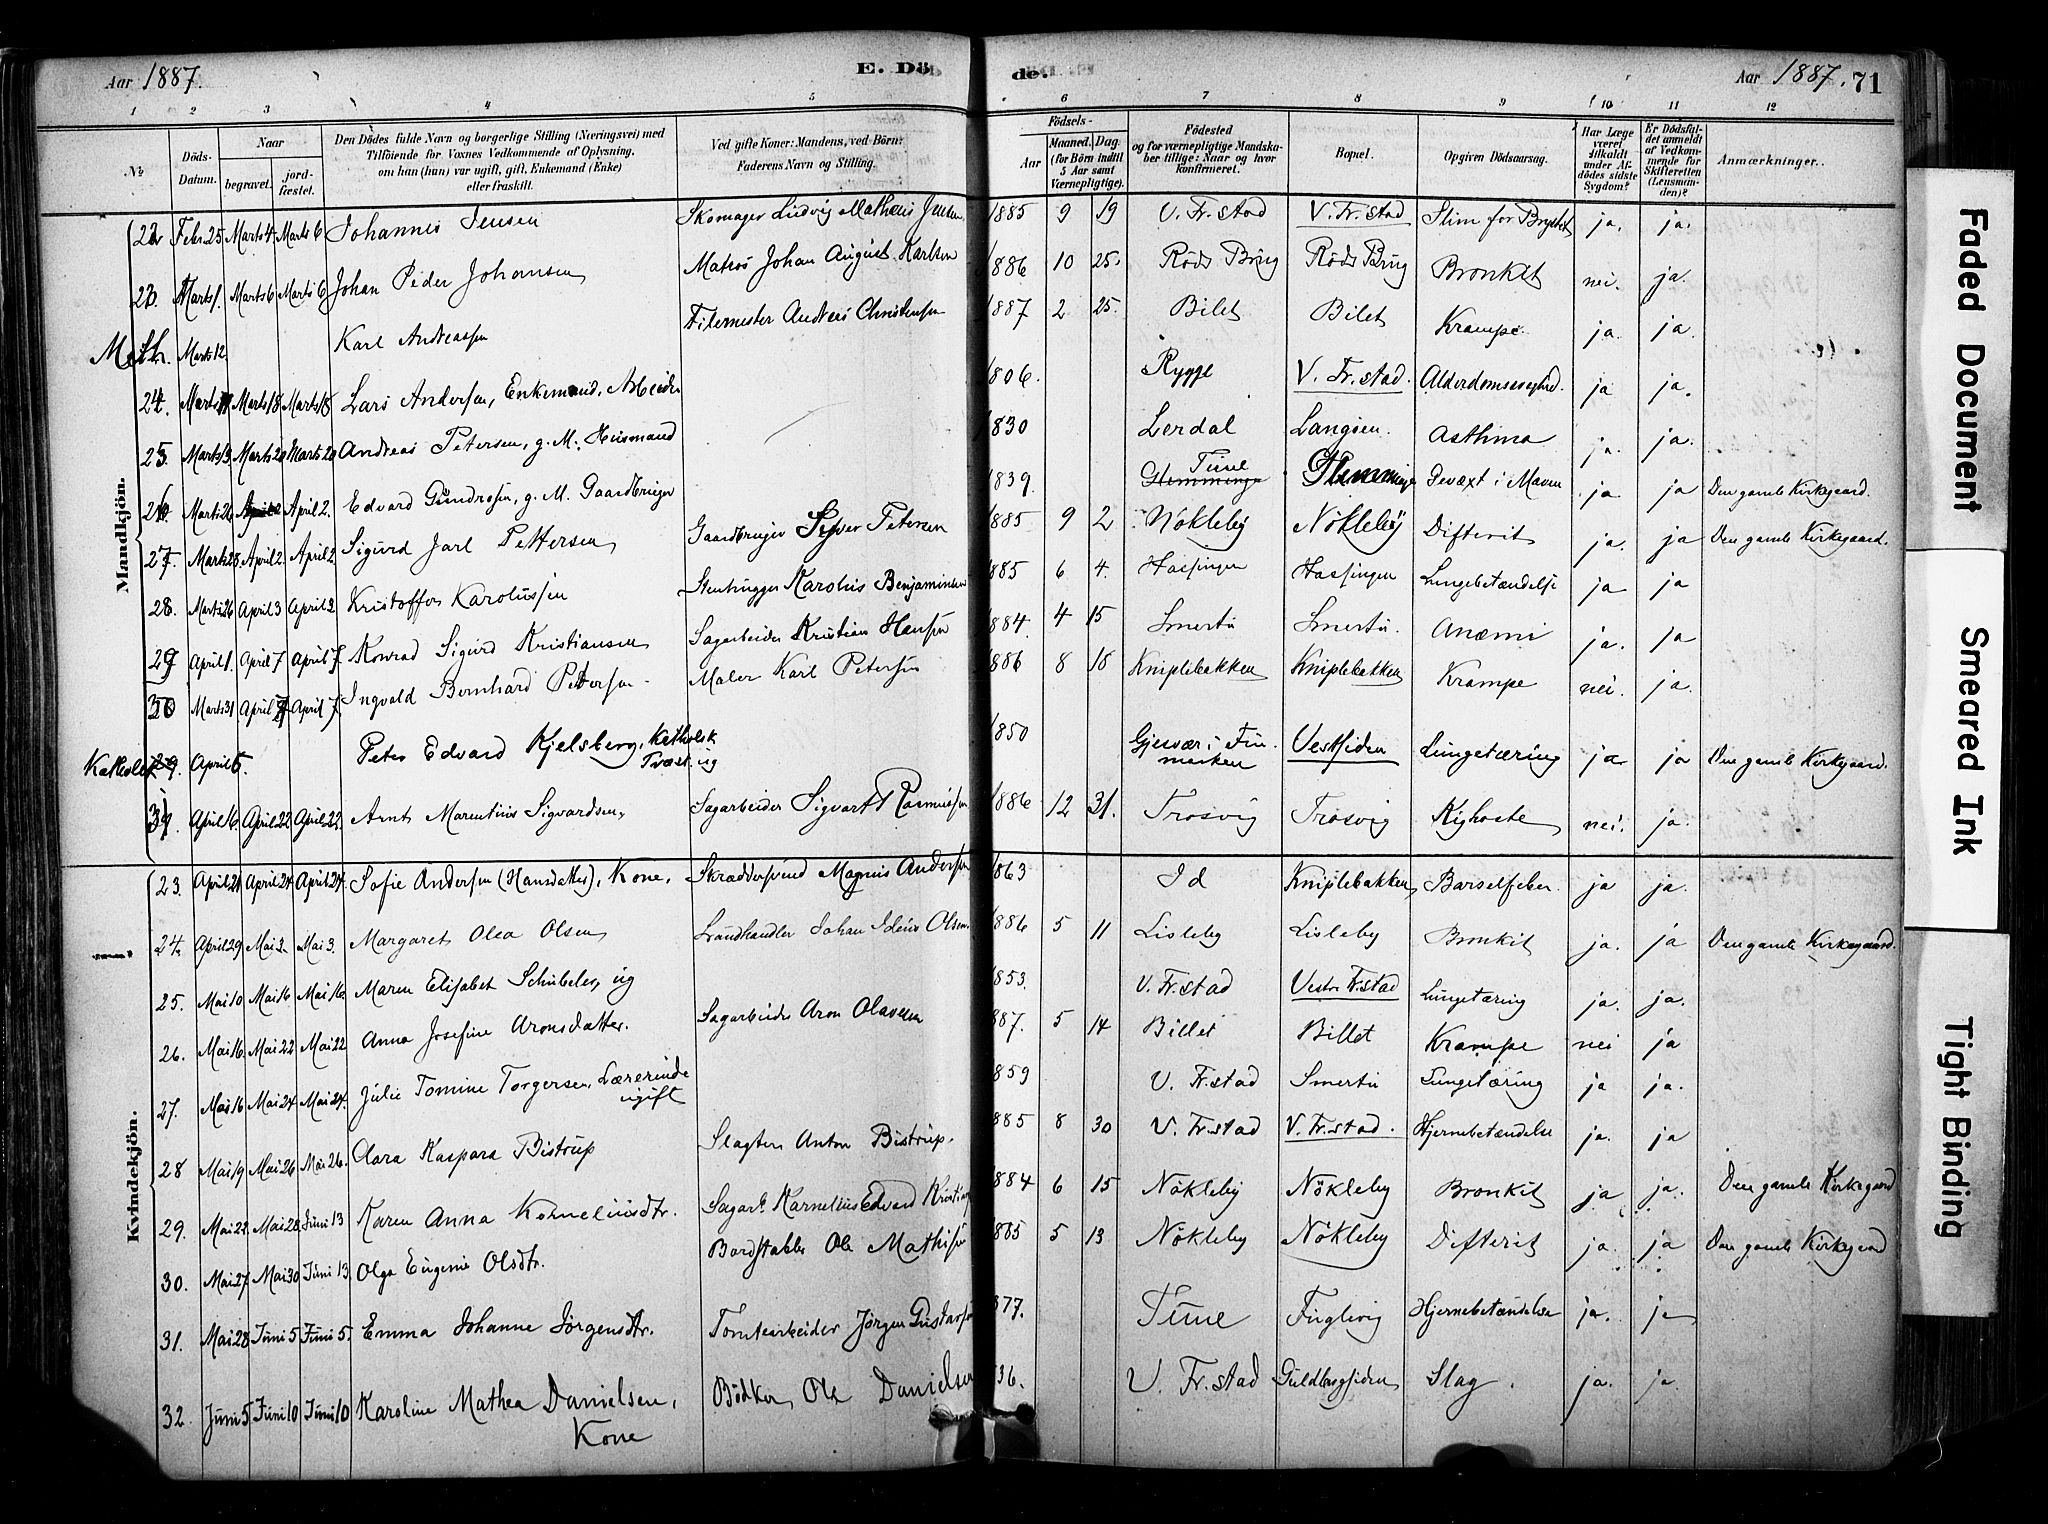 Aar 1887. E. Döde. Aar 1887. 71
1 2 3 4 5 6 7 8 9 10 11 12
№ Döds-Datum. Naar begravet. jordfæstet. Den Dödes fulde Navn og borgerlige Stilling (Næringsvei) med Tilföiende for Voxnes Vedkommende af Oplysning, om han (hun) var ugift, gift, Enkemand (Enke) eller fraskilt. Ved gifte Koner: Mandens, ved Börn: Faderens Navn og Stilling. Födsels- Aar Maaned. Dag. (for Börn indtil 5 Aar samt Værnepligtige). Födested og for værnepligtige Mandskaber tillige: Naar og hvor konfirmeret. Bopæl. Opgiven Dödsaarsag. Har Læge været tilkaldt under Afdödes sidste Sygdom? Er Dödsfaldet anmeldt af Vedkommende for Skifteretten (Lensmanden)? Anmærkninger.
Mandkjön.
22. Febr 25 Marts 4 Marts 6 Johannes Jensen Skomager Ludvig Matheus Jensen 1885 9 19 V. Fr.stad V. Fr.stad Slim for Brystet ja. ja.
23. Marts 1. Marts 6 Marts 6 Johan Peder Johansen Matros Johan August Karlsen 1886 10 25. Röds Brug Röds Brug Bronkit nei. ja.
Meth. Marts 12 Karl Andreassen Filemester Andreas Christensen 1887 2 25. Bilet Bilet Krampe ja. ja.
24. Marts 11 Marts 18 Marts 18 Lars Andersen, Enkemand, Arbeider 1806. Rygge V. Fr.stad. Alderdomssvaghed. ja ja.
25. Marts 13. Marts 20 Marts 20 Andreas Petersen, g. M. Husmand 1830 Lerdal Langöen. Asthma ja. ja.
26. Marts 26 April 2 April 2. Edvard Gundrosen, g. M. Gaardbruger 1839. Tune Glemminge Glemminge Devæxt i Maven ja ja Den gamle Kirkegaard.
27. Marts 25 April 2. April 2 Sigurd Jarl Pettersen Gaardbruger Syver Petersen 1885 9 2 Nökleby Nökleby Difterit ja. ja Den gamle Kirkegaard.
28. Marts 26 April 3 April 3 Kristoffer Karolussen Stenhugger Karolus Benjaminsen 1885 6 4. Hassingen Hassingen Lungebetændelse ja ja
29 April 1. April 7 April 7. Konrad Sigurd Kristiansen Sagarbeider Kristian Hansen 1884 4 15 Smertu Smertu. Anæmi ja. ja
30 Marts 31 April 7 April 7. Ingvald Bernhard Petersen Maler Karl Petersen 1886 8 18 Kniplebakken Kniplebakken Krampe nei. ja.
Katholsk 29. April 5. Peter Edvard Kjelsberg, Katholsk Præst. ug 1850 Gjesvær i Finmarken Vestsiden Lungetæring ja ja Den gamle Kirkegaard.
31. April 16. April 22 April 22. Arnt Marentius Sigvardsen, Sagarbeider Sigvart Rasmussen 1886 12 31. Trosvig Trosvig Kighoste nei. ja.
Kvindekjön.
23. April 21 April 24 April 24. Sofie Andersen (Hansdatter), Kone, Skræddersvend Magnus Andersen 1863 Id Kniplebakken Barselfeber ja ja.
24. April 29 Mai 2. Mai 3. Margaret Olea Olsen Landhandler Johan Idéus Olsen 1886 5 11 Lisleby Lisleby Bronkit ja. ja Den gamle Kirkegaard.
25. Mai 10 Mai 16 Mai 16. Maren Elisabet Schübeler, ug 1853. V. Fr.stad Vestre Fr.stad Lungetæring ja. ja.
26. Mai 16. Mai 22 Mai 22 Anna Josefine Aronsdatter. Sagarbeider Aron Olavesen 887. 5 14 Billet Billet Krampe nei ja
27. Mai 16 Mai 24 Mai 24. Julie Tomine Torgersen, Lærerinde ugift 859 V. Fr.stad Smertu Lungetæring ja ja.
28 Mai 19 Mai 26 Mai 26. Clara Kaspara Bistrup Slagter Anton Bistrup. 885 8 30 V. Fr.stad V. Fr.stad. Hjernebetændelse ja. ja
29. Mai 22 Mai 28 Juni 13 Karen Anna Korneliusdtr. Sagarb. Kornelius Edvard 884 6 15 Nökleby Nökleby Bronkit ja ja. Den gamle Kirkegaard
30. Mai 27 Mai 30 Juni 13 Olga Eugenie Olsdtr. Bordstabler Ole Mathisen 885 5 13 Nökleby Nökleby Difterit ja. ja Den gamle Kirkegaard
31. Mai 28 Juni 5 Juni 5 Emma Johanne Jörgensdtr. Tomtearbeider Jörgen Gustavsen 877. Tune Fuglevig Hjernebetændelse ja. ja
32. Juni 5 Juni 10 Juni 10 Karoline Mathea Danielsen, Kone Bödker Ole Danielsen 36. V. Fr.stad Guldbergsiden Slag. ja. ja.
Faded Document
Smeared Ink
Tight Binding